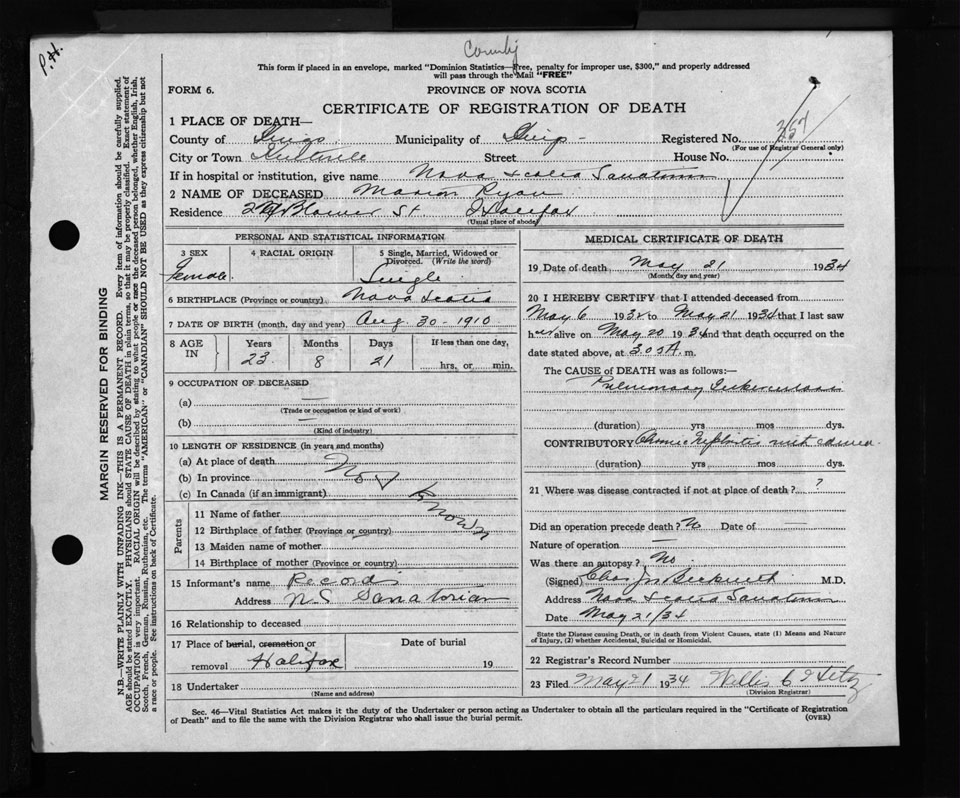 P.H.
County
This form if placed in an envelope, marked "Dominion Statistics—Free, penalty for improper use, $300," and properly addressed
will pass through the Mail "FREE"
FORM 6.
PROVINCE OF NOVA SCOTIA
CERTIFICATE OF REGISTRATION OF DEATH
1 PLACE OF DEATH—
County of Kings Municipality of Kings Registered No. 357
(For use of Registrar General only)
City or Town Kentville Street House No.
If in hospital or institution, give name Nova Scotia Sanatorium
2 NAME OF DECEASED Marion Ryan
Residence Blower St. Halifax
(Usual place of abode)
PERSONAL AND STATISTICAL INFORMATION
3 SEX 4 RACIAL ORIGIN 5 Single, Married, Widowed or Divorced. (Write the word)
Female Single
6 BIRTHPLACE (Province or country) Nova Scotia
7 DATE OF BIRTH (month, day and year) Aug. 30 - 1910
8 AGE IN Years Months Days If less than one day,
23 8 21 hrs. or min.
9 OCCUPATION OF DECEASED
(a) —
(Trade or occupation or kind of work)
(b) —
(Kind of industry)
10 LENGTH OF RESIDENCE (in years and months)
(a) At place of death
(b) In province
(c) In Canada (if an immigrant)
Not Known
Parents
11 Name of father
12 Birthplace of father (Province or country)
13 Maiden name of mother
14 Birthplace of mother (Province or country)
15 Informant's name Records
Address N.S Sanatorium
16 Relationship to deceased
17 Place of burial, cremation or removal Halifax Date of burial 19
18 Undertaker
(Name and address)
MEDICAL CERTIFICATE OF DEATH
19 Date of death May 21 1934
(Month, day and year)
20 I HEREBY CERTIFY that I attended deceased from
May 6 1934 to May 21 1934 that I last saw
her alive on May 20 1934 and that death occurred on
date stated above, at 3.05 A. m.
The CAUSE of DEATH was as follows:—
Pulmonary Tuberculosis
(duration) yrs mos dys.
CONTRIBUTORY Chronic Nephritis with edema
(duration) yrs mos dys.
21 Where was disease contracted if not at place of death? ?
Did an operation precede death? No Date of —
Nature of operation —
Was there an autopsy? No.
(Signed) Chas Beckwith M.D.
Address Nova Scotia Sanatorium
Date May 21/34
State the Disease causing Death, or in death from Violent Causes, state (1) Means and Nature
of Injury, (2) whether Accidental, Suicidal or Homicidal.
22 Registrar's Record Number
23 Filed May 21 1934 Willis C
(Division Registrar)
Sec. 46—Vital Statistics Act makes it the duty of the Undertaker or person acting as Undertaker to obtain all the particulars required in the "Certificate of Registration
of Death" and to file the same with the Division Registrar who shall issue the burial permit.
(OVER)
MARGIN RESERVED FOR BINDING
N.B.—WRITE PLAINLY WITH UNFADING INK—THIS IS A PERMANENT RECORD. Every item of information should be carefully supplied.
AGE should be stated EXACTLY. PHYSICIANS should STATE CAUSE OF DEATH in plain terms, so that it may be properly classified. Exact statement of
OCCUPATION is very important. RACIAL ORIGIN will be described by stating to what people or race the deceased person belonged, whether English, Irish,
Scotch, French, German, Russian, Ruthenian, etc. The terms "AMERICAN" or "CANADIAN" SHOULD NOT BE USED as they express citizenship but not
a race or people. See instructions on back of Certificate.